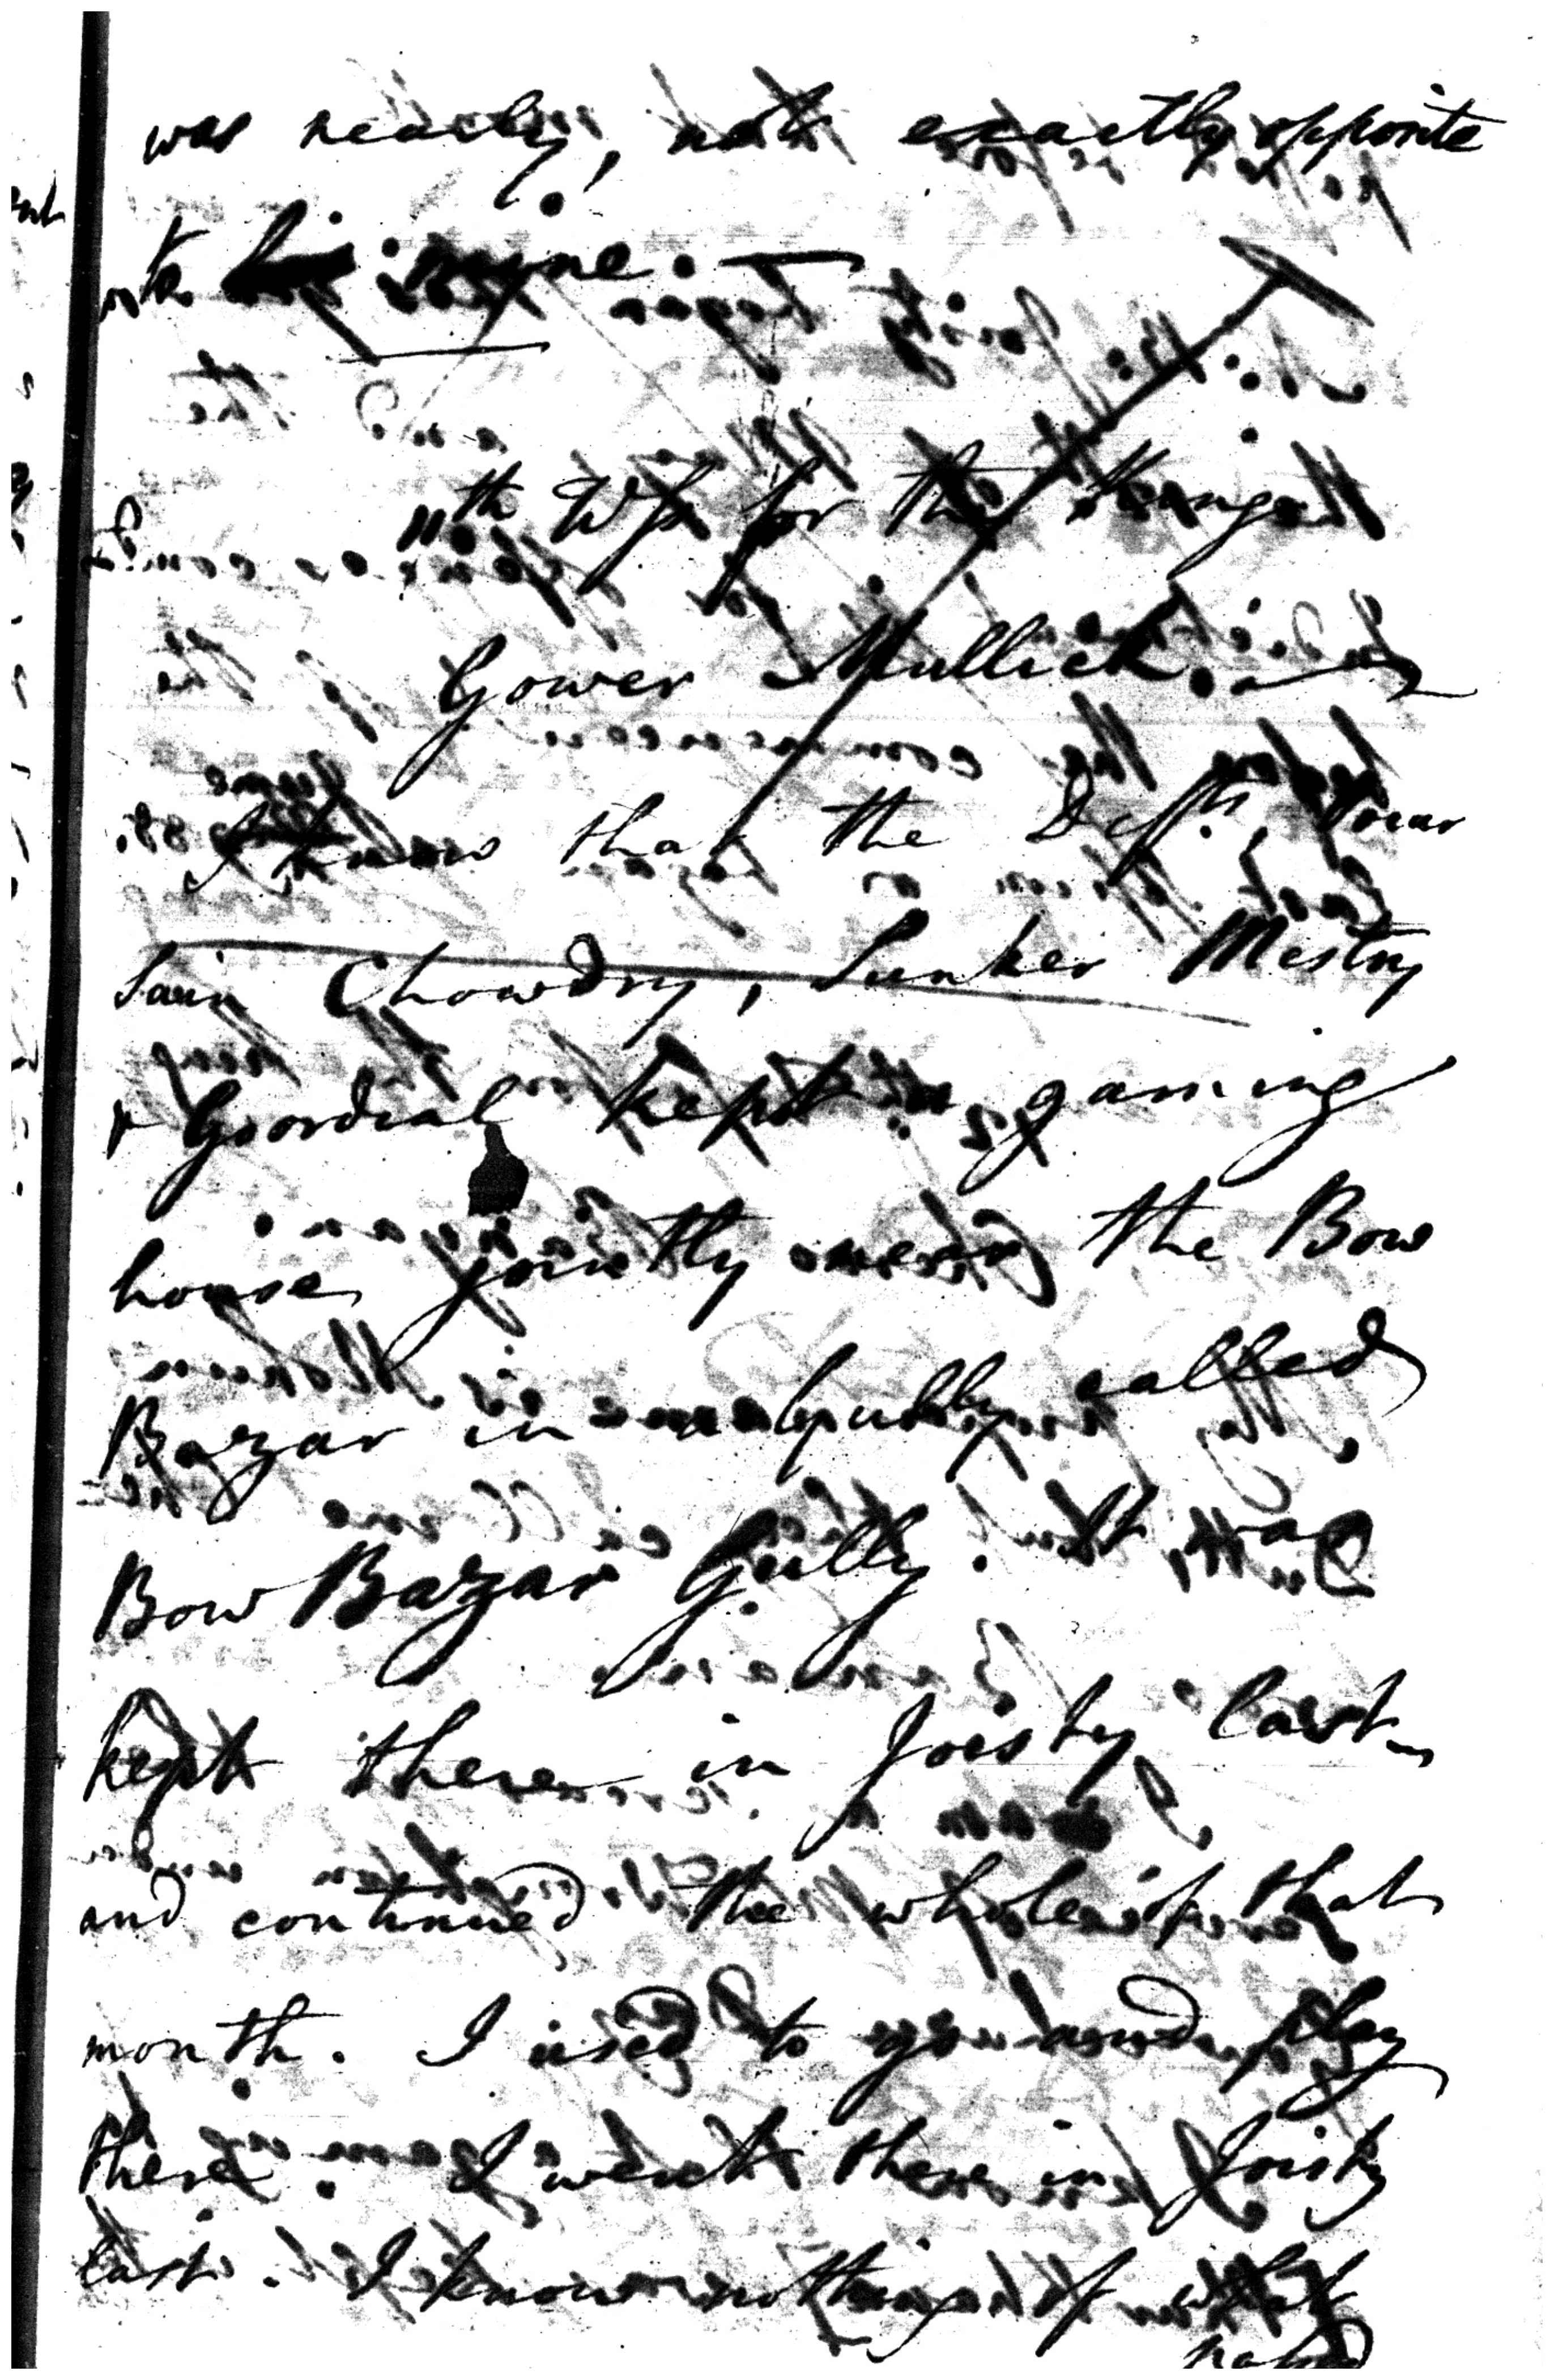 was nearly, not exactly opposite
to mine. —
11th Wss for the
Gower Mullick.
I know that the Defts,
Sain Chowdry, Sunker Mestry
& Goordial kept a gaming
house jointly near the Bow
Bazar in a gully called
Bow Bazar Gully. It was
kept there in Joisty last
and continued the whole of that
month. I used to go and play
there. I went there in Joisty
last. I know nothing of what